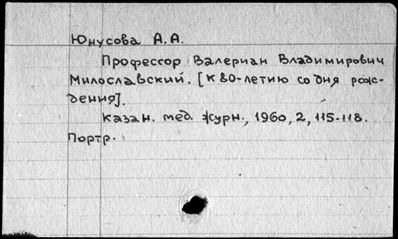 Юнусова А.А.
Профессор Валериан Владимирович
Милославский. [К 80-летию со дня рож-
дения].
Казан. мед. журн., 1960, 2, 115-118.
Портр.